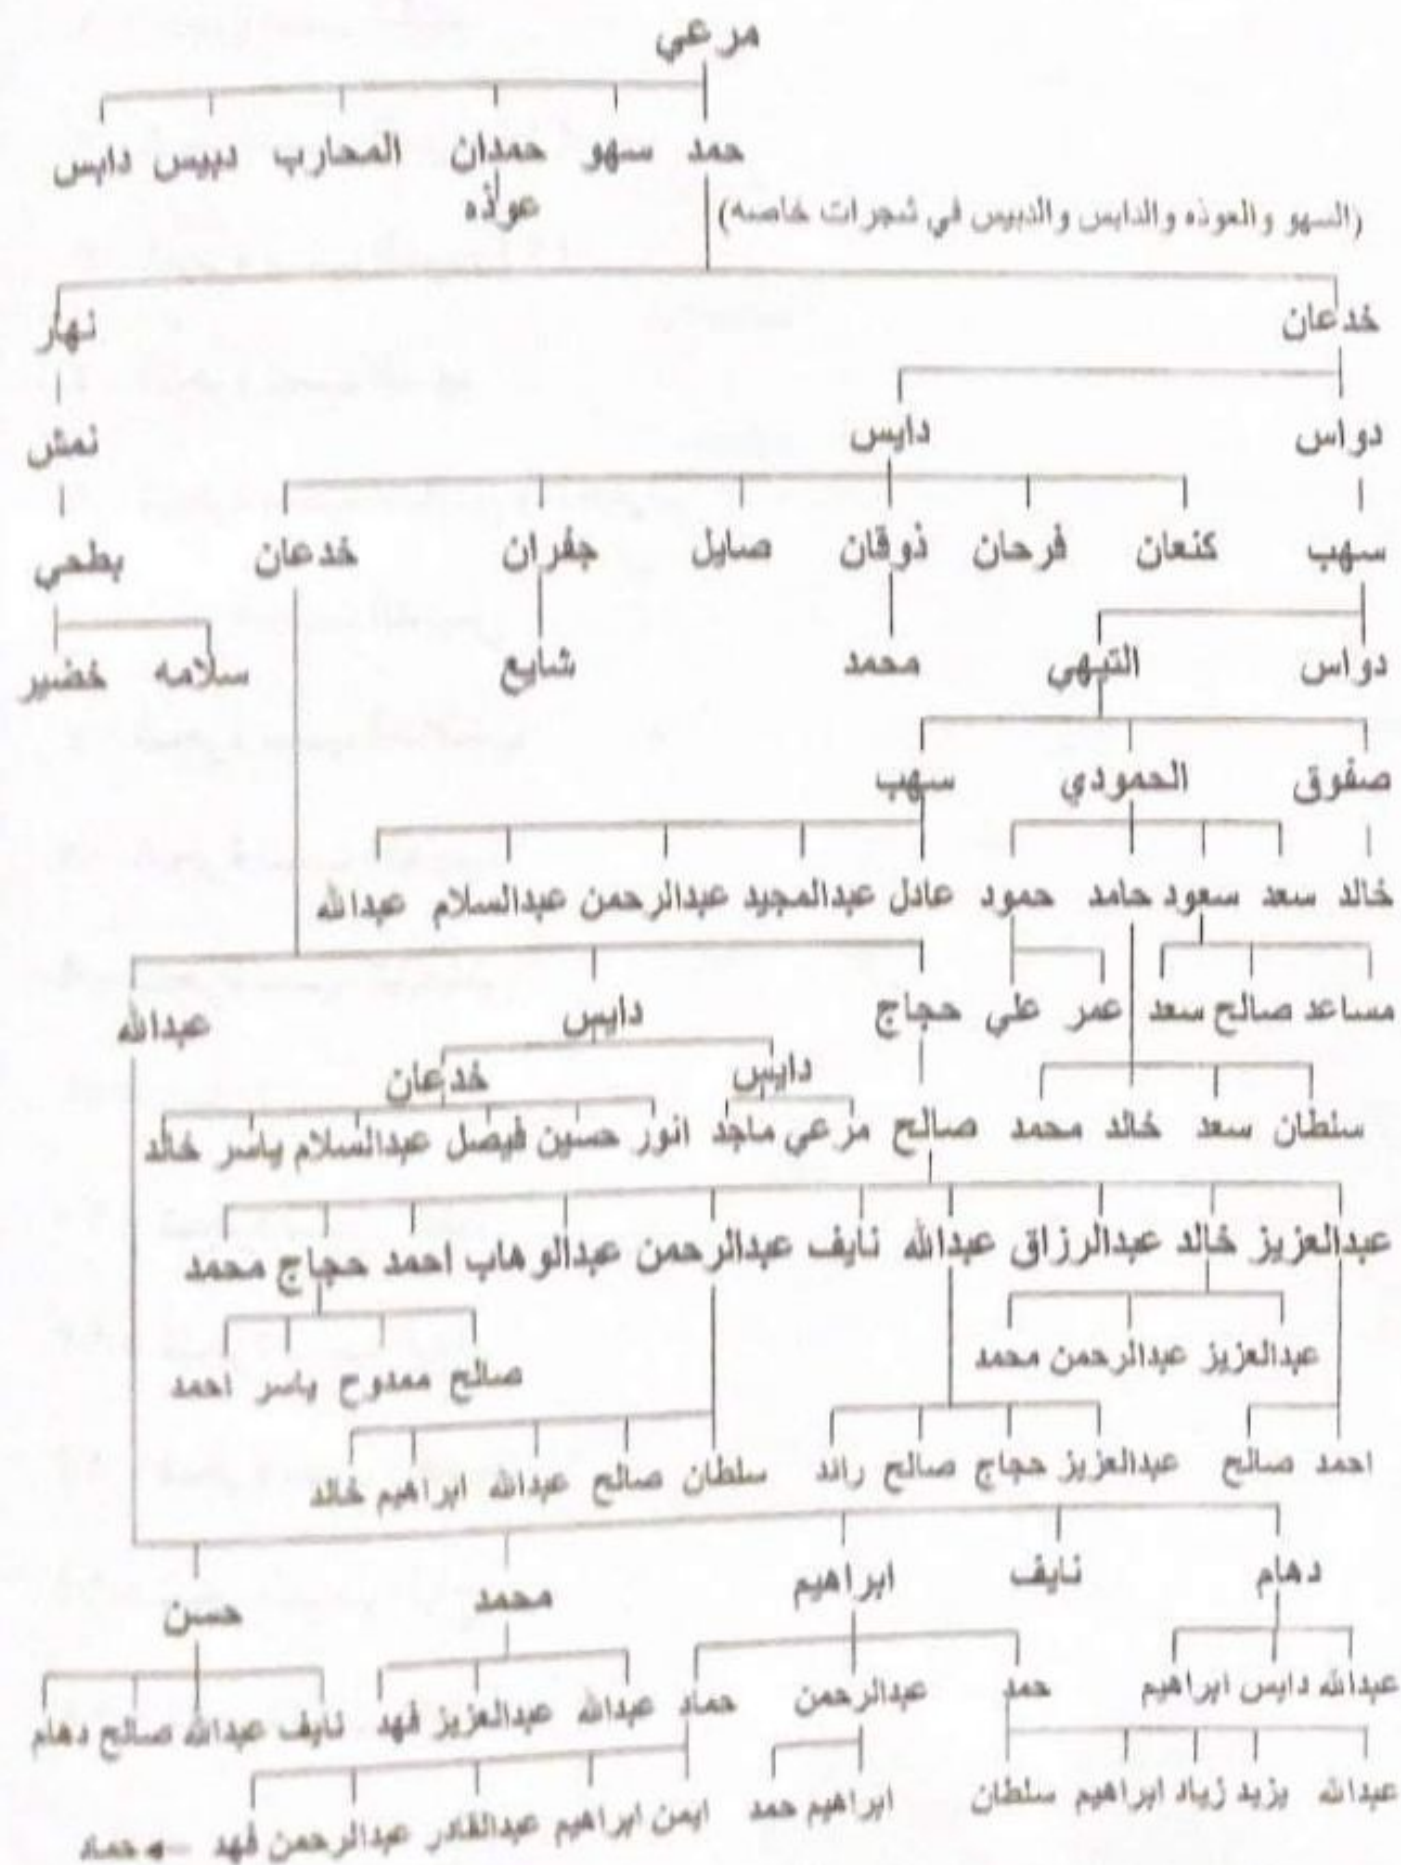 مرعي
حمد سهو حمدان المحارب دبيس دابس
عوذه
(السهو والعوذه والدابس والدبيس في شجرات خاصه)
خدعان نهار
دواس دايس نمش
سهب كنعان فرحان ذوقان صايل جفران خدعان بطحي
دواس التيهي محمد شايع سلامه خضير
صفوق الحمودي سهب
خالد سعد سعود حامد حمود عادل عبدالمجيد عبدالرحمن عبدالسلام عبدالله
مساعد صالح سعد عمر علي حجاج دايس عبدالله
دايس خدعان
سلطان سعد خالد محمد صالح مرعي ماجد انور حسين فيصل عبدالسلام ياسر خالد
عبدالعزيز خالد عبدالرزاق عبدالله نايف عبدالرحمن عبدالوهاب احمد حجاج محمد
عبدالعزيز عبدالرحمن محمد صالح ممدوح ياسر احمد
احمد صالح عبدالعزيز حجاج صالح رائد سلطان صالح عبدالله ابراهيم خالد
دهام نايف ابراهيم محمد حسن
عبدالله دايس ابراهيم حمد عبدالرحمن حماد عبدالله عبدالعزيز فهد نايف عبدالله صالح دهام
عبدالله يزيد زياد ابراهيم سلطان ابراهيم حمد ايمن ابراهيم عبدالقادر عبدالرحمن فهد حماد